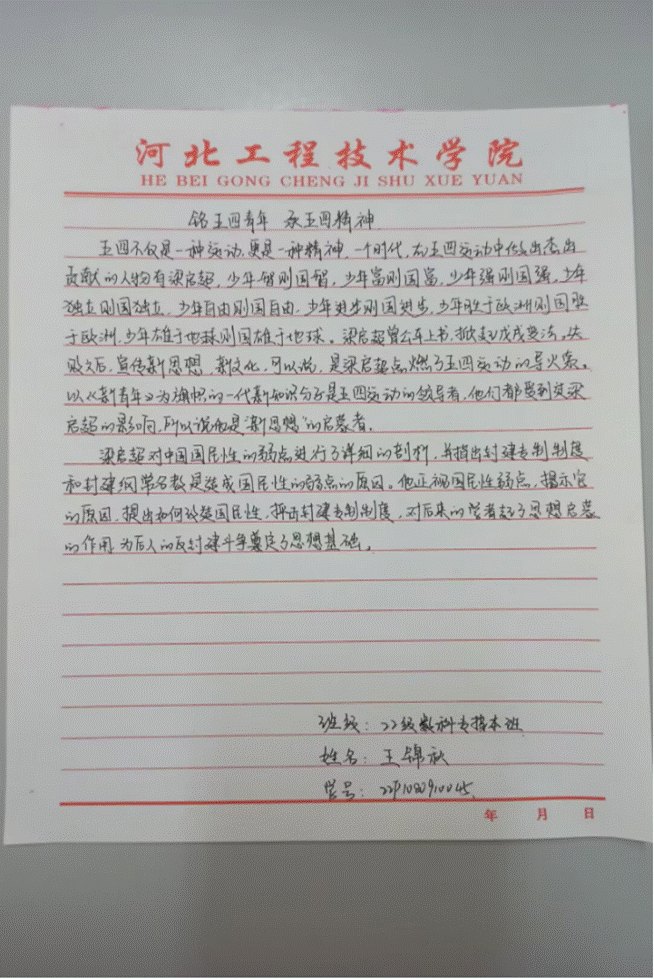 河北工程技术学院
HE BEI GONG CHENG JI SHU XUE YUAN
铭五四青年 承五四精神
五四不仅是一种运动,更是一种精神,一个时代,在五四运动中做出杰出
贡献的人物有梁启超,少年智则国智,少年富则国富,少年强则国强,少年
独立则国独立,少年自由则国自由,少年进步则国进步,少年胜于欧洲则国胜
于欧洲,少年雄于地球则国雄于地球。梁启超曾公车上书,掀起戊戌变法。失
败之后,宣传新思想,新文化,可以说,是梁启超点燃了五四运动的导火索。
以《新青年》为旗帜的一代新知识分子是五四运动的领导者,他们都受到梁
启超的影响,所以说他是"新思想"的启蒙者。
梁启超对中国国民性的弱点进行了详细的剖析,并指出封建专制制度
和封建纲常名教是造成国民性的弱点的原因。他正视国民性弱点,揭示它
的原因,提出如何改造国民性,抨击封建专制制度,对后来的学者起了思想启蒙
的作用,为后人的反封建斗争奠定了思想基础。
班级:22级数科专接本班
姓名:王锦秋
学号:
年 月 日